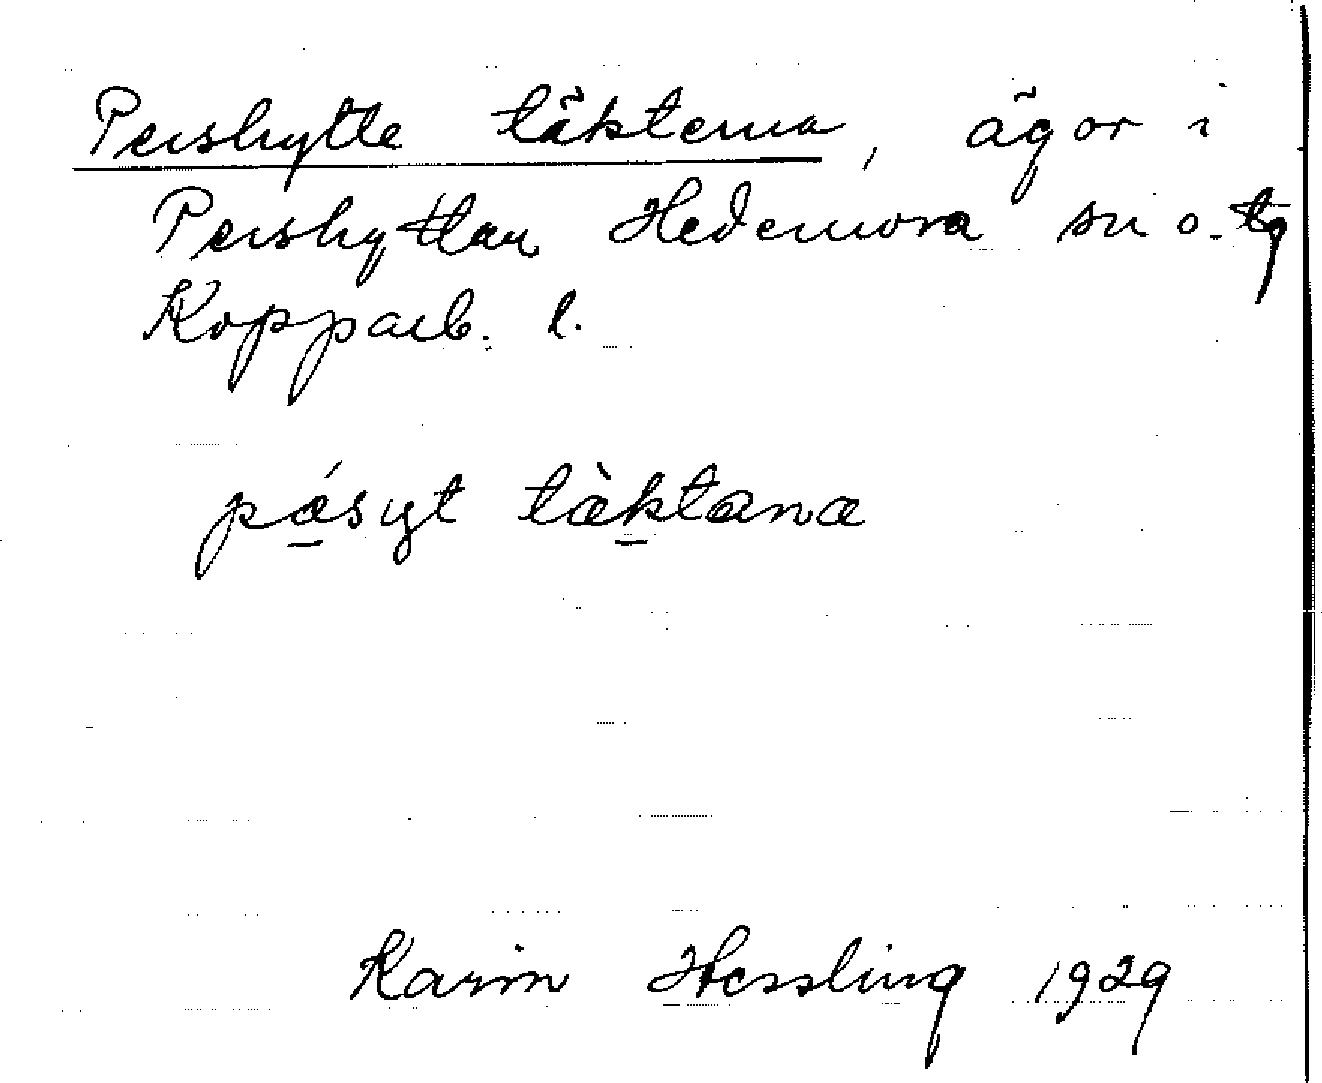 Pershytte täkterna, ägor i
Pershyttan Hedemora sn o. tg
Kopparb. l.
pǽ̠syt tæ̠̀ktana
Karin Hessling 1929